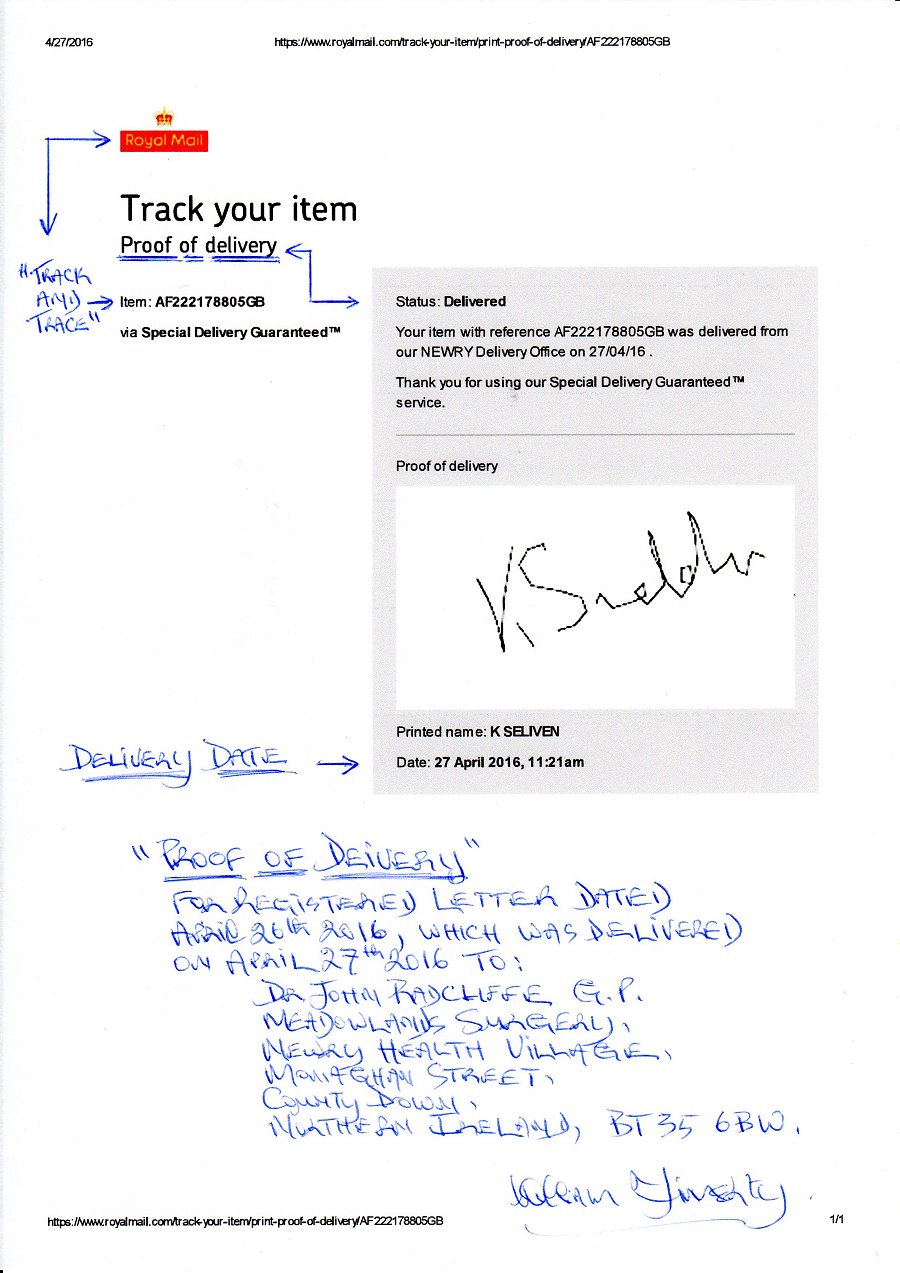 4/27/2016 https://www.royalmail.com/track-your-item/print-proof-of-delivery/AF222178805GB
Royal Mail
Track your item
Proof of delivery
"TRACK
AND
TRACE"
Item: AF222178805GB
via Special Delivery Guaranteed™
Status: Delivered
Your item with reference AF222178805GB was delivered from
our NEWRY Delivery Office on 27/04/16 .
Thank you for using our Special Delivery Guaranteed™
service.
Proof of delivery
Printed name: K SELIVEN
DELIVERY DATE
Date: 27 April 2016, 11:21am
"PROOF OF DEIVERY"
FOR REGISTERED LETTER DATED
APRIL 26th 2016, WHICH WAS DELIVERED
ON APRIL 27th 2016 TO:
DR JOHN RADCLIFFE G.P.
MEADOWLANDS SURGERY,
NEWRY HEALTH VILLAGE,
MONAGHAN STREET,
COUNTY DOWN,
NORTHERN IRELAND, BT35 6BW.
William
https://www.royalmail.com/track-your-item/print-proof-of-delivery/AF222178805GB 1/1